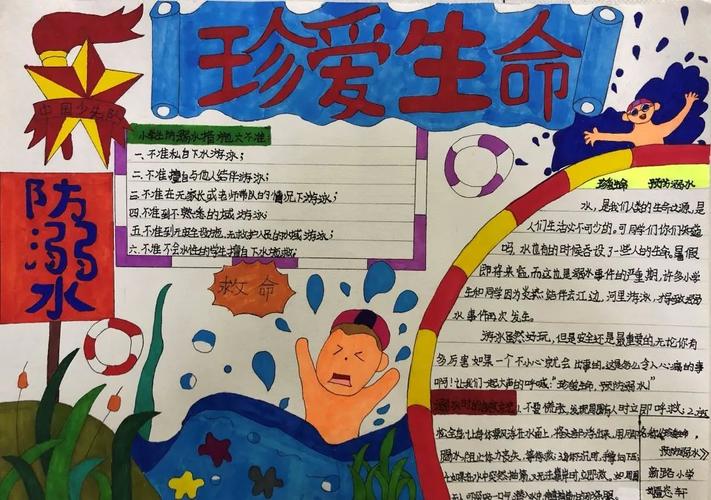 珍爱生命
中国少先队
防溺水
小学生防溺水措施六不准
一、不准私自下水游泳；
二、不准擅自与他人结伴游泳；
三、不准在无家长或老师带队的情况下游泳；
四、不准到不熟悉的水域游泳；
五、不准到无安全设施、无救护人员的水域游泳；
六、不准不会水性的学生擅自下水施救；
救命
珍爱生命 预防溺水
水，是我们人类的生命之源，是
人们生活必不可少的。可同学们你们知道
吗，水有的时候吞没了一些人的生命。暑假
即将来临，而这是溺水事件的严重期，许多小学
生和同学因为炎热，结伴去江边，河里游泳，才导致溺
水事件再次发生。
游泳虽然好玩，但是安全还是最重要的，无论你有
多厉害，如果一个不小心就会出事的，这是多么令人心痛的事
啊！让我们一起大声的呼喊："珍爱生命，预防溺水"
1.不要慌张，发现周围有人时立即呼救；2.放
松全身，让身体飘浮在水面上，将
预防溺水》
新路小学